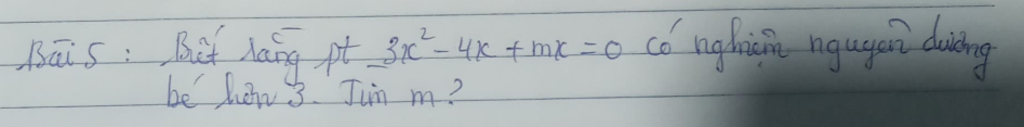 Bài 5 : Biết rằng pt 3x² - 4x + mx = 0 có nghiệm nguyên dương
bé hơn 3. Tìm m?